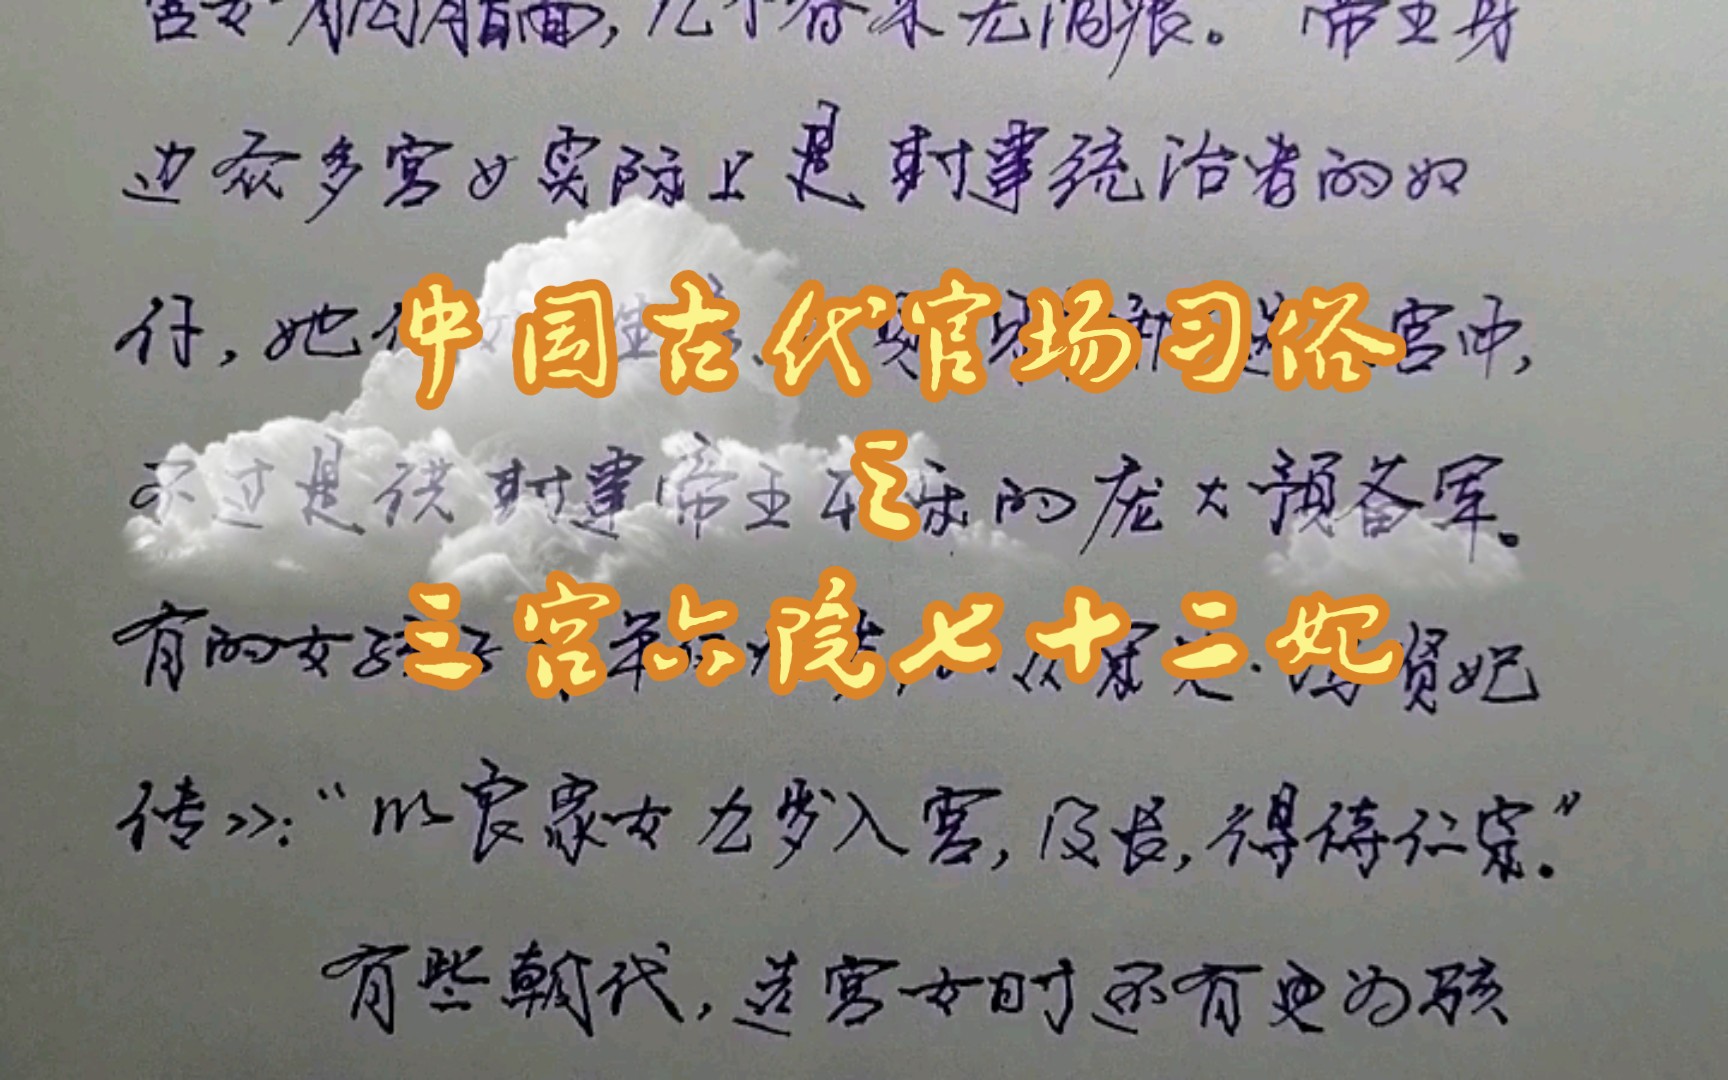 宫女胭脂面,几个春来无泪痕。帝王身
边众多宫女实际上是封建统治者的奴
仆,她 宫中,
中国古代官场习俗
不过是供封建帝王 乐的庞大预备军。
之
有的女孩子 贤妃
三宫六院七十二妃
传>>:“以良家女九岁入宫,及长,得侍仁宗”.
有些朝代,选宫女时还有更为骇